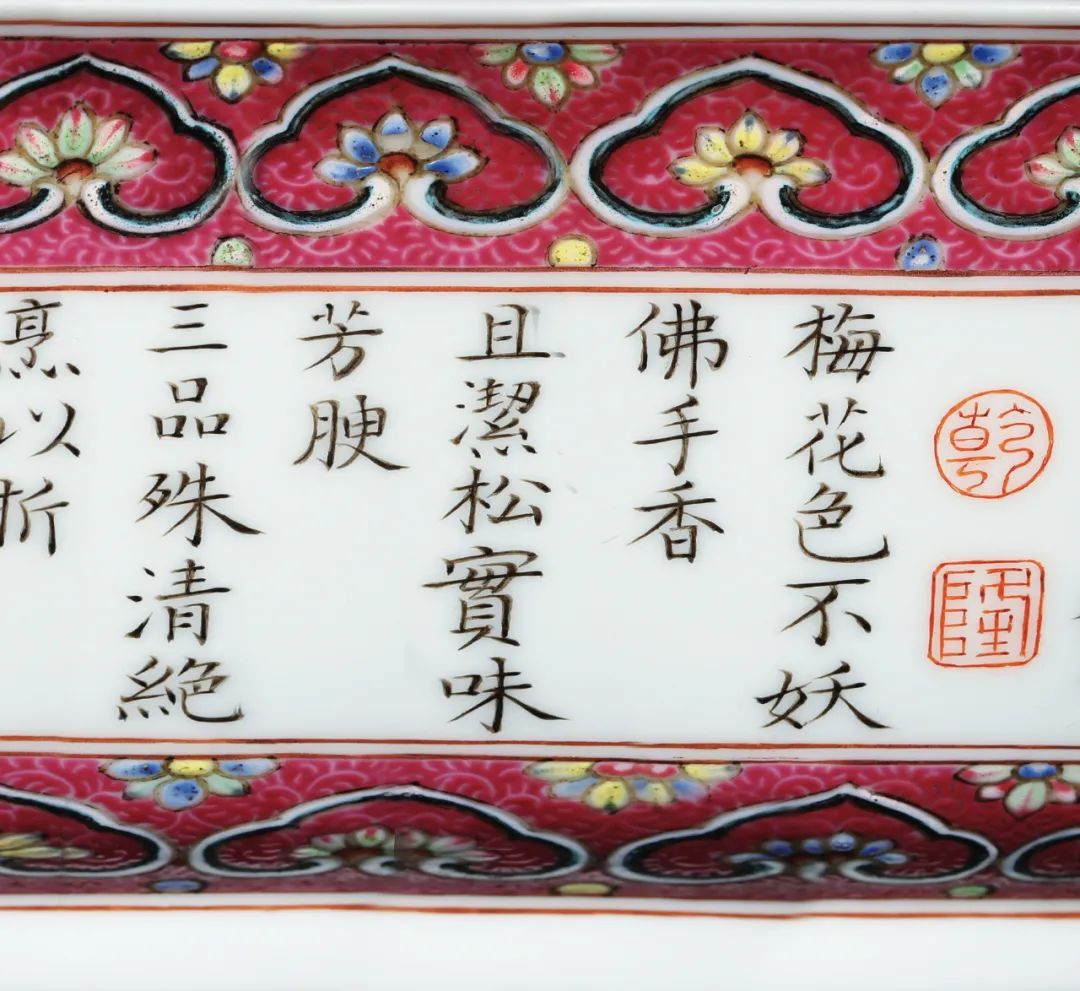 乾
隆
梅花色不妖
佛手香
且潔松實味
芳腴
三品殊清絶
烹以折